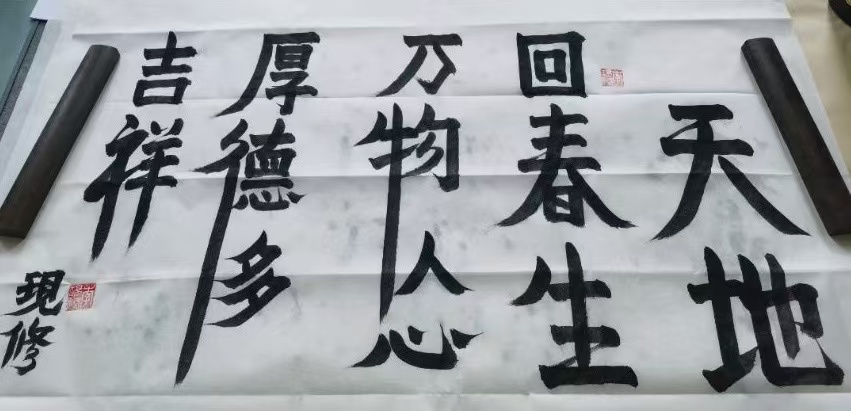 天地
回春生
万物人心
厚德多
吉祥
现修